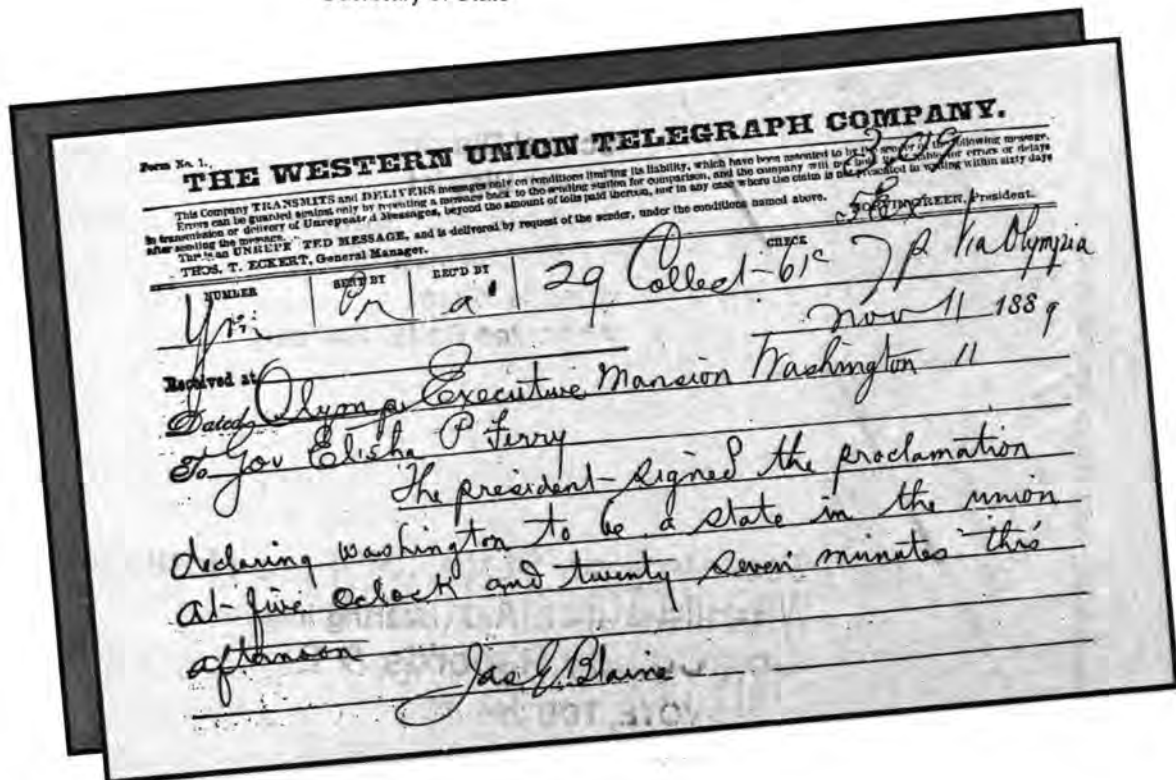 Form No. 1.
THE WESTERN UNION TELEGRAPH COMPANY.
This Company TRANSMITS and DELIVERS messages only on conditions limiting its liability, which have been assented to by the sender of the following message.
Errors can be guarded against only by repeating a message back to the sending station for comparison, and the company will not hold itself liable for errors or delays
in transmission or delivery of Unrepeated Messages, beyond the amount of tolls paid thereon, nor in any case where the claim is not presented in writing within sixty days
after sending the message.
This is an UNREPEATED MESSAGE, and is delivered by request of the sender, under the conditions named above.
THOS. T. ECKERT, General Manager. GREEN, President.
NUMBER SENT BY REC'D BY CHECK
a 29 Collect - 61c Via Olympia
Nov 11 1889
Received at
Dated Olympia Executive Mansion Washington 11
To Gov Elisha P Ferry
The president - signed the proclamation
declaring washington to be a state in the union
at - five oclock and twenty seven minutes this
afternoon
Jas G Blaine